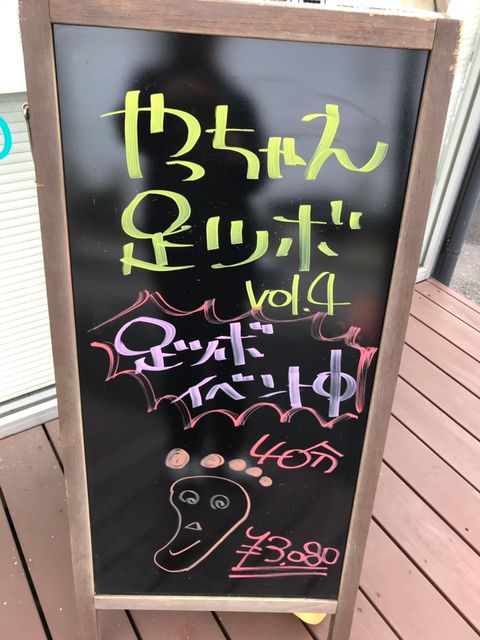 やっちゃん
足ツボ
vol.4
足ツボ
イベント中
40分
¥3,080